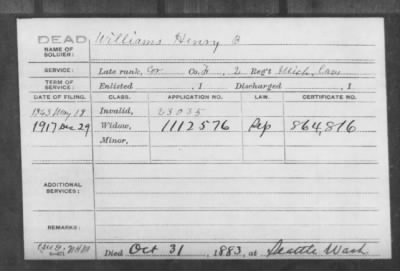 DEAD Williams Henry B
NAME OF SOLDIER:
SERVICE: Late rank, Cor Co. F, 2 Reg't Mich. Cav
TERM OF SERVICE: Enlisted , 1 Discharged , 1
DATE OF FILING. CLASS. APPLICATION NO. LAW. CERTIFICATE NO.
1863 May 19 Invalid, 23035
1917 Dec 29 Widow, 1112576 Rep 864,816
Minor,
ADDITIONAL SERVICES:
REMARKS:
Died Oct 31, 1883, at Seattle Wash